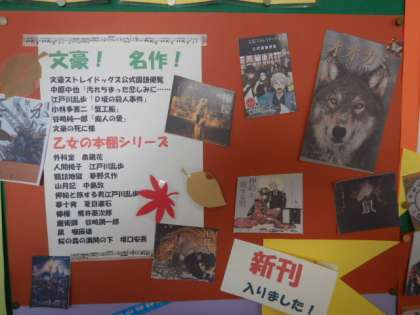 文豪！　名作！
文豪ストレイドッグス公式国語便覧
中原中也「汚れちまった悲しみに……
江戸川乱歩「D坂の殺人事件」
小林多喜二「蟹工船」
谷崎純一郎「痴人の愛」
文豪の死に様
乙女の本棚シリーズ
外科室　泉鏡花
人間椅子　江戸川乱歩
瓶詰地獄　夢野久作
山月記　中島敦
押絵と旅する男江戸川乱歩
夢十夜　夏目漱石
檸檬　梶井基次郎
魔術師　谷崎潤一郎
鼠　堀辰雄
桜の森の満開の下　坂口安吾
オオカミ
新刊
入りました！